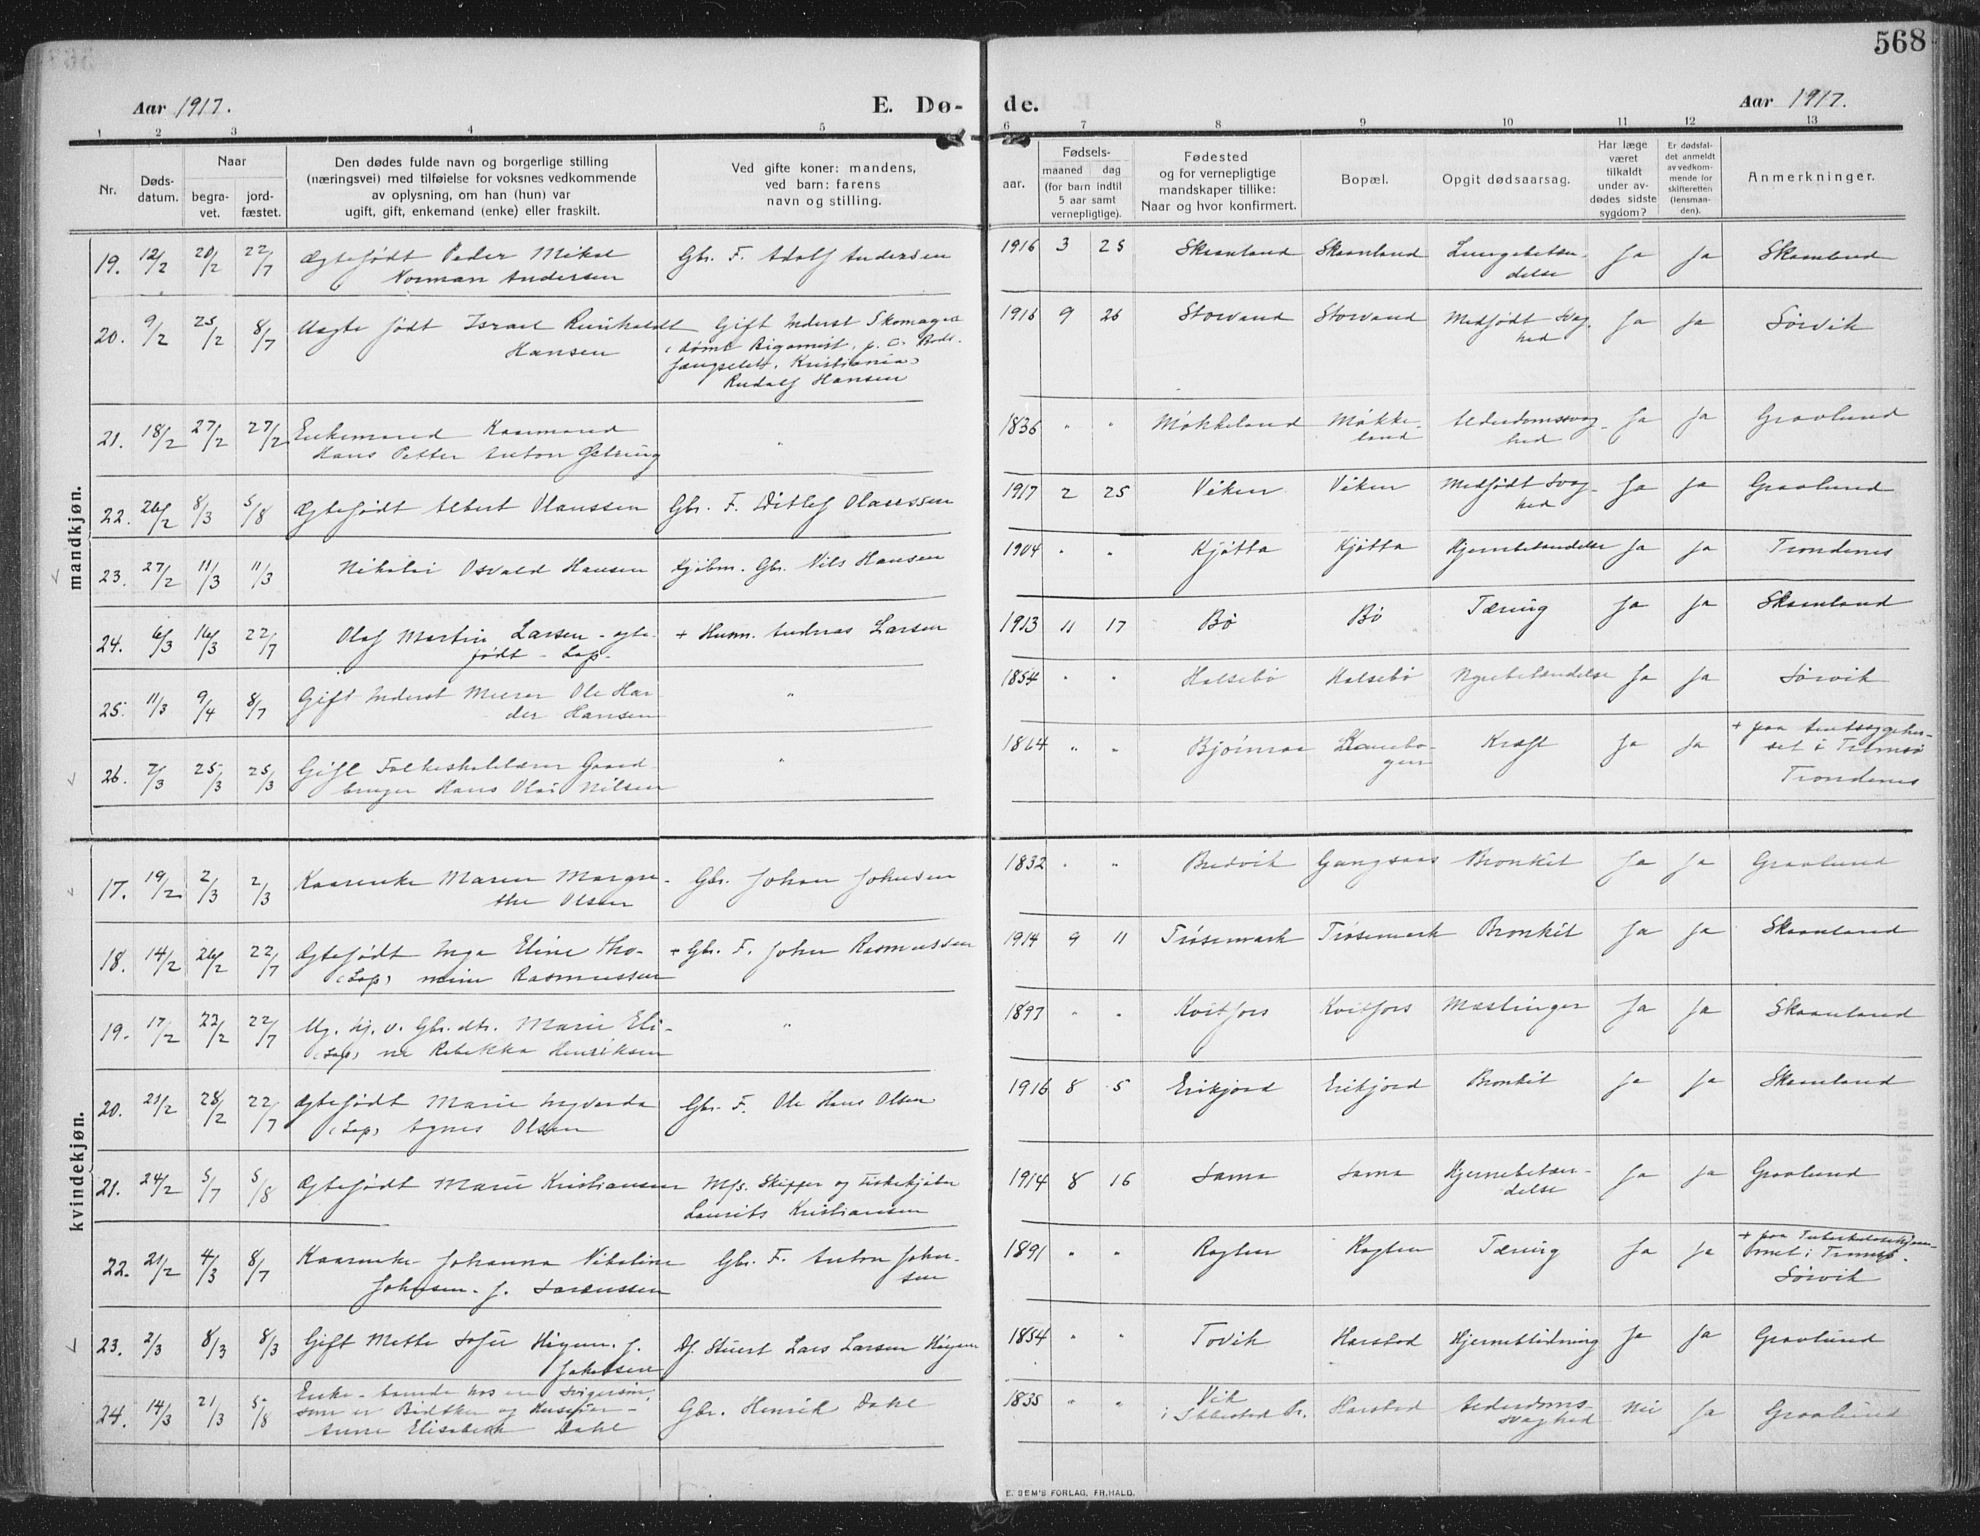 568
Aar 1917.
E. Dø-
de.
Aar 1917.
1 2 3 4 5 6 7 8 9 10 11 12 13
Nr.
Døds-
datum.
Naar
begra-
vet.
jord-
fæstet.
Den dødes fulde navn og borgerlige stilling
(næringsvei) med tilføielse for voksnes vedkommende
av oplysning, om han (hun) var
ugift, gift, enkemand (enke) eller fraskilt.
Ved gifte koner: mandens,
ved barn: farens
navn og stilling.
aar.
Fødsels-
maaned dag
(for barn indtil
5 aar samt
vernepligtige).
Fødested
og for vernepligtige
mandskaper tillike:
Naar og hvor konfirmert.
Bopæl.
Opgit dødsaarsag.
Har læge
været
tilkaldt
under av-
dødes sidste
sygdom?
Er dødsfal-
det anmeldt
av vedkom-
mende for
skifteretten
(lensman-
den).
Anmerkninger.
mandkjøn.
19. 12/2 20/2 22/7 Ægtefødt Peder Mikal Gbr. F. Adolf Andersen 1916 3 25 Skaanland Skaanland Lungebetæn- Ja Ja Skaanland
Norman Andersen delse
20. 9/2 25/2 8/7 Uægte født Israel Reinholdt Gift Inderst Skomager 1916 9 26 Storvand Storvand Medfødt Svag- Ja Ja Sørvik
Hansen (dømt Bigamist, p. t. Bods- hed
fængselet, Kristiania)
Rudolf Hansen
21. 18/2 27/2 27/2 Enkemand Kaarmand " 1836 " " Møkkeland Møkke- Alderdomssvag- Ja Ja Gravlund
Hans Petter Anton land hed
22. 26/2 8/3 5/8 Ægtefødt Albert Olaussen Gbr. F. Ditlef Olaussen 1917 2 25 Viken Viken Medfødt Svag- Ja Ja Gravlund
hed
23. 27/2 11/3 11/3 Nikolai Osvald Hansen Kjøbm. Gbr. Nils Hansen 1904 " " Kjøtta Kjøtta Hjernebetændelse Ja Ja Trondenes
24. 6/3 16/3 22/7 Olaf Martin Larsen - ægte + Husm. Andreas Larsen 1913 11 17 Bø Bø Tæring Ja Ja Skaanland
født - Lap -
25. 11/3 9/4 8/7 Gift Inderst Murer Ole Har- " 1854 " " Halsebø Halsebø Nyrebetændelse Ja Ja Sørvik
der Hansen
26. 7/3 25/3 25/3 Gift Folkeskolelærer Gaard- " 1864 " " Bjørnraa Kanebo- Kræft Ja Ja + paa Amtssygehu-
bruger Hans Olai Nilsen gen set i Tromsø
Trondenes
kvindekjøn.
17. 19/2 2/3 2/3 Kaarenke Maren Margre- Gbr. Johan Johnsen 1832 " " Bredvik Gangsaas Bronkit Ja Ja Gravlund
the Olsen
18. 14/2 26/2 22/7 Ægtefødt Inga Eline Tho- + Gbr. F. Johan Rasmussen 1914 9 11 Trøsemark Trøsemark Bronkit Ja Ja Skaanland
(Lap) mine Rasmussen
19. 17/2 22/2 22/7 Ug. hj. v. Gbr. dtr. Marie Eli- " 1897 " " Kvitfors Kvitfors Mæslinger Ja Ja Skaanland
(Lap) ne Rebekka Henriksen
20. 21/2 28/2 22/7 Ægtefødt Marie Ingvarda Gbr. F. Ole Hans Olsen 1916 8 5 Erikjord Erikjord Bronkit Ja Ja Skaanland
(Lap) Agnes Olsen
21. 24/2 5/7 5/8 Ægtefødt Marie Kristiansen Mfs. Skipper og Fiskekjøber 1914 8 16 Sama Sama Hjernebetæn- Ja Ja Gravlund
Laurits Kristiansen delse
22. 21/2 4/3 8/7 Kaarenke Johanna Nikoline Gbr. F. Anton John- 1891 " " Røglen Røglen Tæring Ja Ja + paa Tuberkulosehjem-
Johnsen f. Sørenssen sen met i Tromsø.
Sørvik
23. 2/3 8/3 8/3 Gift Mette Sofie f. Stuert Lars Larsen 1854 " " Tovik Harstad Hjerneblødning Ja Ja Gravlund
Jakobsen
24. 14/3 21/3 5/8 Enke - boende hos en Svigersøn, Gbr. Henrik Dahl 1835 " " Vik Harstad Alderdoms- Nei Ja Gravlund
som er Bødtker og Huseier - i Ibbestad Pr. svaghed
Anne Elisabeth Dahl
E. SEM'S FORLAG, FR.HALD.